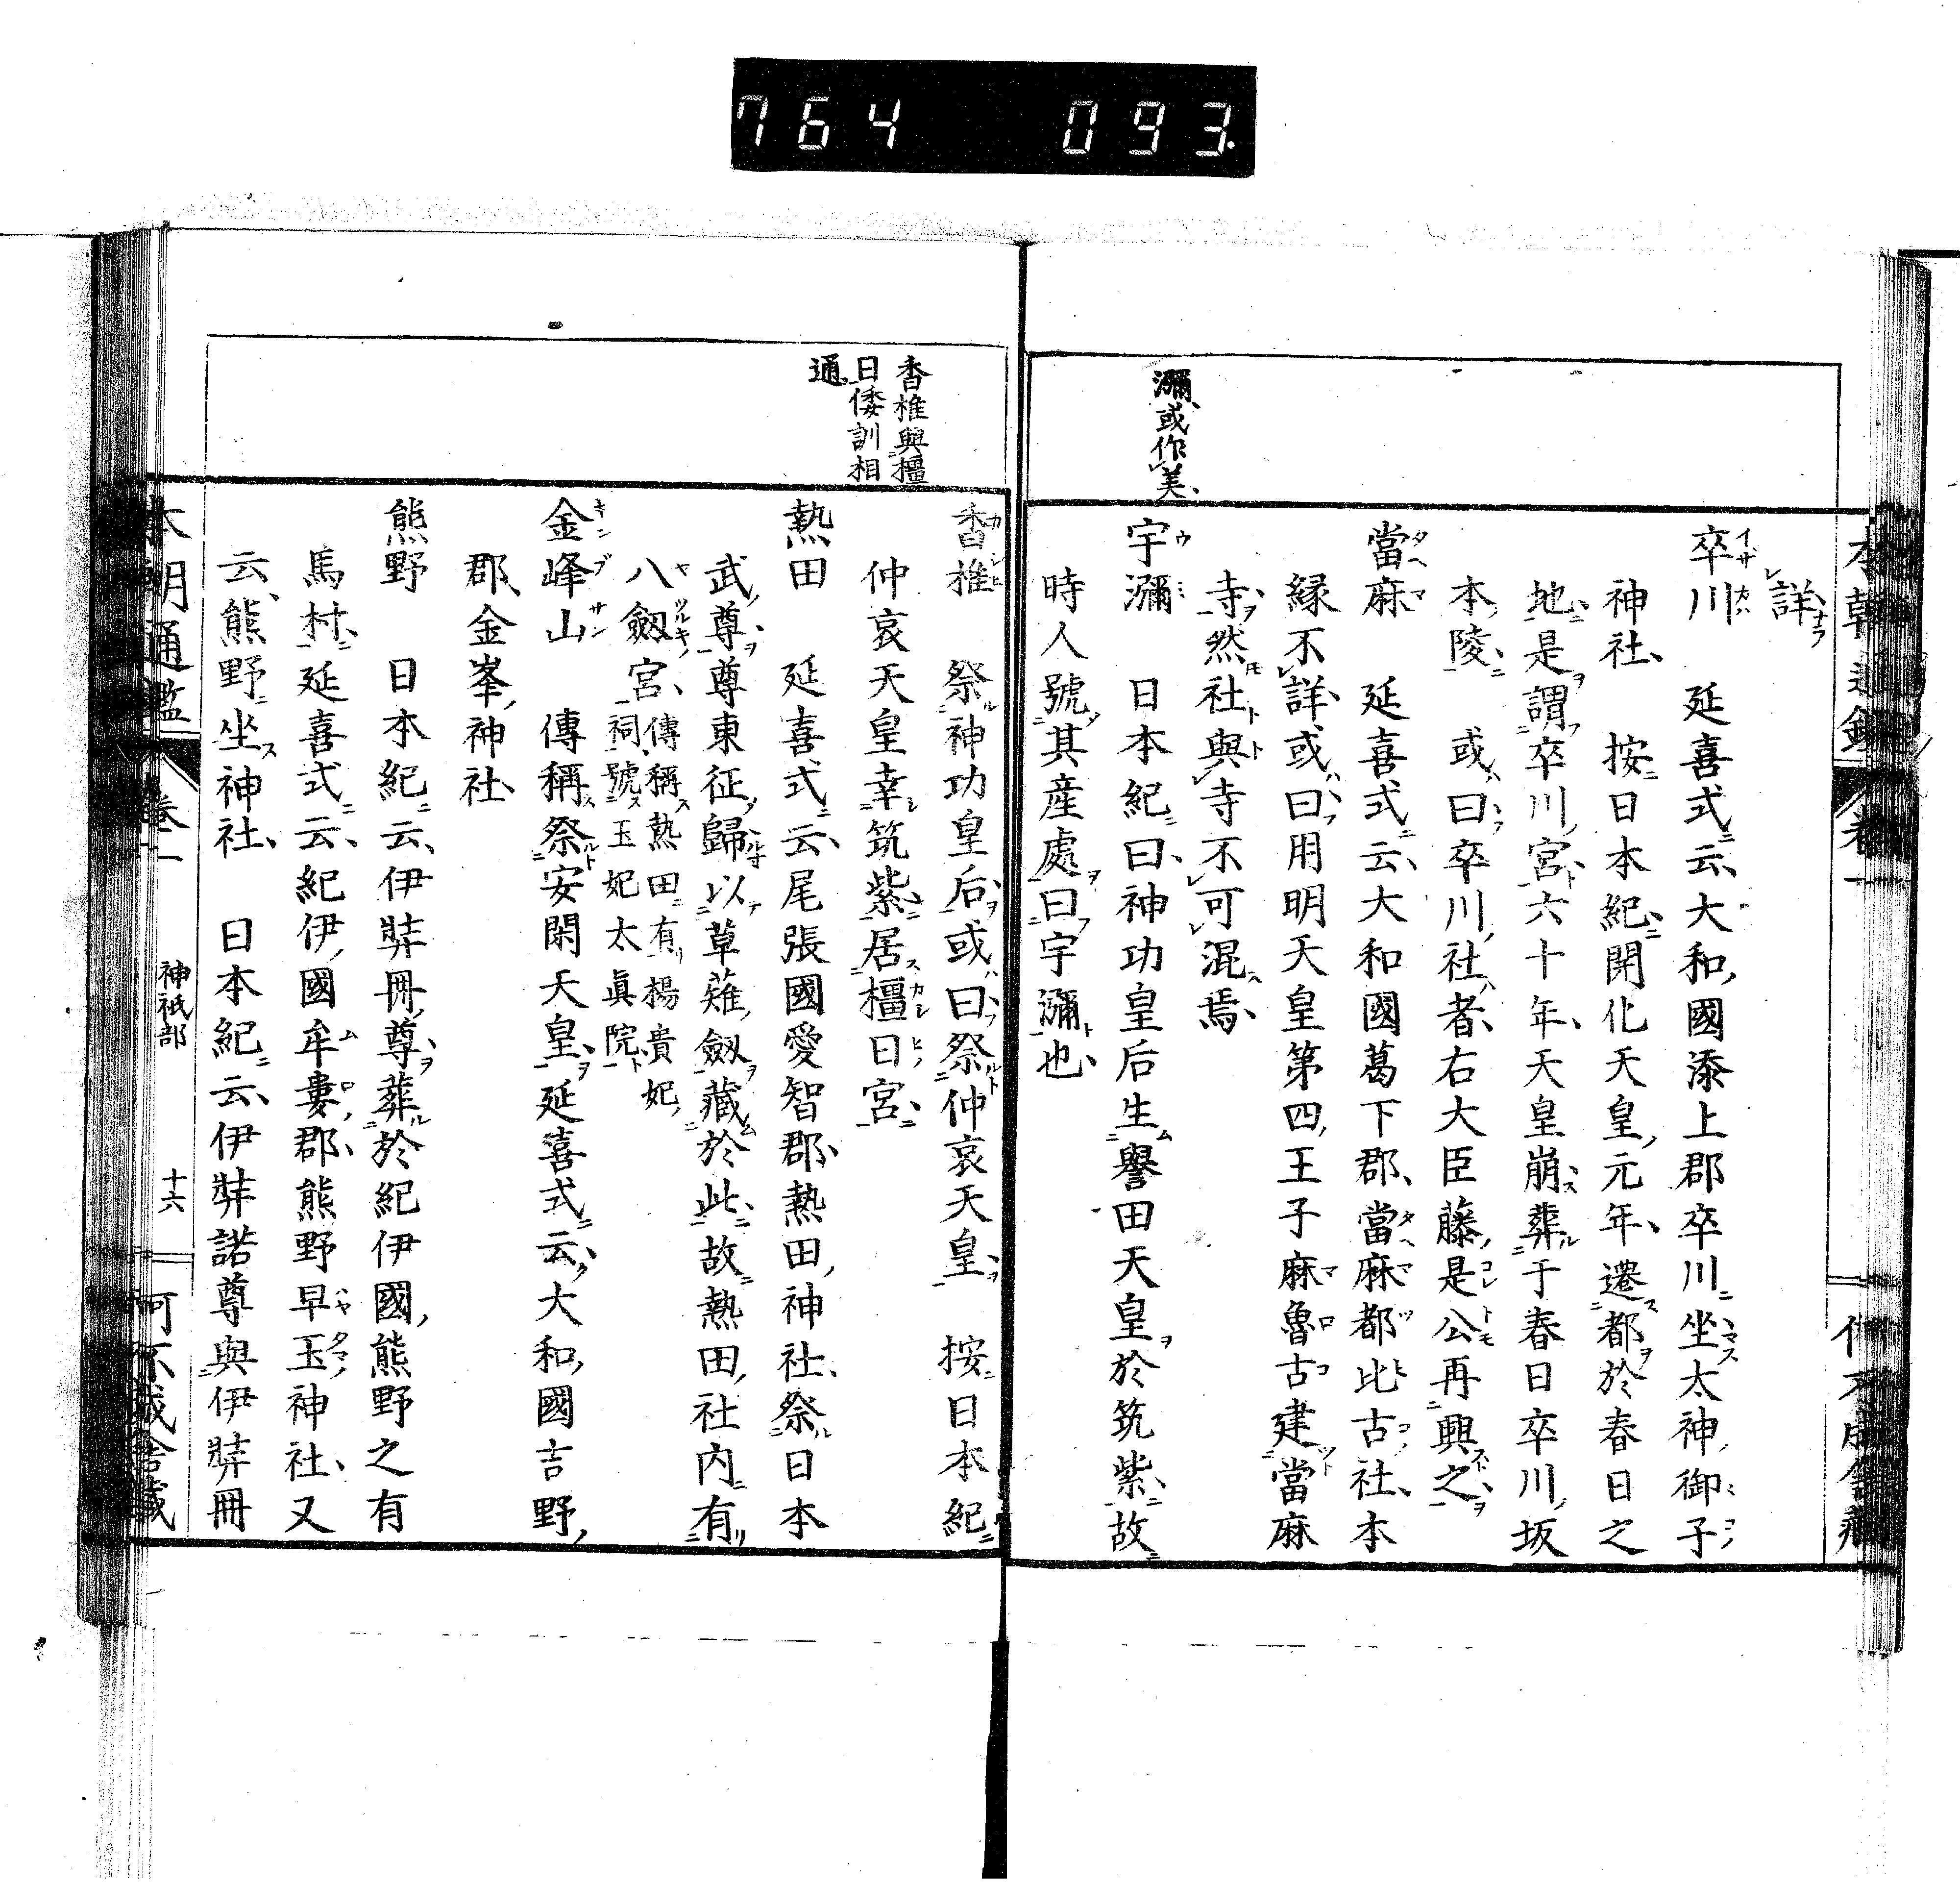 764 093
瀰或作美
詳
卒川 延喜式云大和國添上郡卒川坐太神御子
神社 按日本紀開化天皇元年遷都於春日之
地是謂卒川宮六十年天皇崩葬于春日卒川坂
本陵 或曰卒川社者右大臣藤是公再興之
當麻 延喜式云大和國葛下郡當麻都比古社本
緣不詳或曰用明天皇第四王子麻魯古建當麻
寺然社與寺不可混焉
宇瀰 日本紀曰神功皇后生譽田天皇於筑紫故
時人號其産處曰宇瀰也
香椎與橿
日倭訓相
通
香椎 祭神功皇后或曰祭仲哀天皇 按日本紀
仲哀天皇幸筑紫居橿日宮
熱田 延喜式云尾張國愛智郡熱田神社祭日本
武尊尊東征歸以草薙劔藏於此故熱田社内有
八劔宮傳稱熱田有楊貴妃
祠號玉妃太眞院
金峰山 傳稱祭安閑天皇延喜式云大和國吉野
郡金峯神社
熊野 日本紀云伊弉冊尊葬於紀伊國熊野之有
馬村延喜式云紀伊國牟婁郡熊野早玉神社又
云熊野坐神社 日本紀云伊弉諾尊與伊弉冊
本朝通鑑 卷一 神祇部 十六